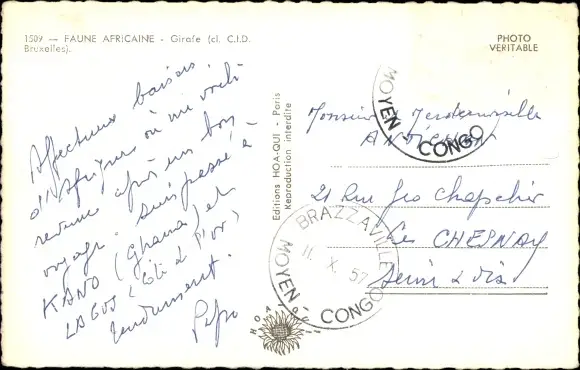 1509 — FAUNE AFRICAINE - Girafe (cl. C.I.D.
Bruxelles).
PHOTO
VERITABLE
Affectueux baisers
d'Afrique où me voici
revenu après un bon
voyage. Suis passé à
KANO (Ghana) et
LAGOS (Côte d'or)
Tendrement.
Editions HOA-QUI - Paris
Reproduction interdite
Monsieur Mesdemoiselle
21 Rue Geo Chapelier
Le CHESNAY
Seine & Oise
MOYEN - CONGO
BRAZZAVILLE
11 X. 57
MOYEN CONGO
HOA QUI